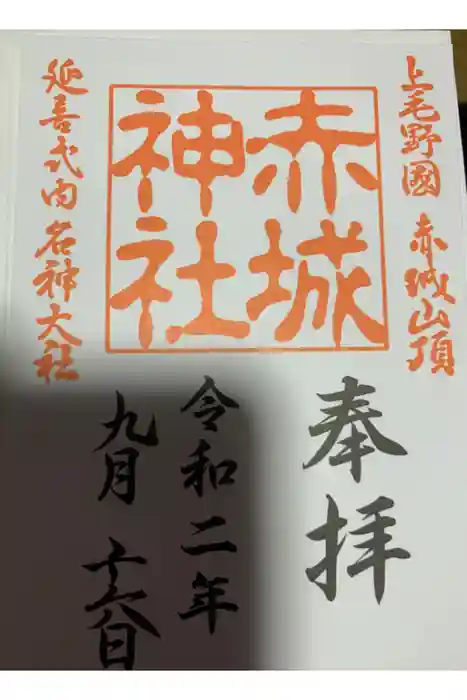 上毛野國 赤城山頂
赤城
神社
延喜式内名神大社
奉拝
令和二年
九月 十六日